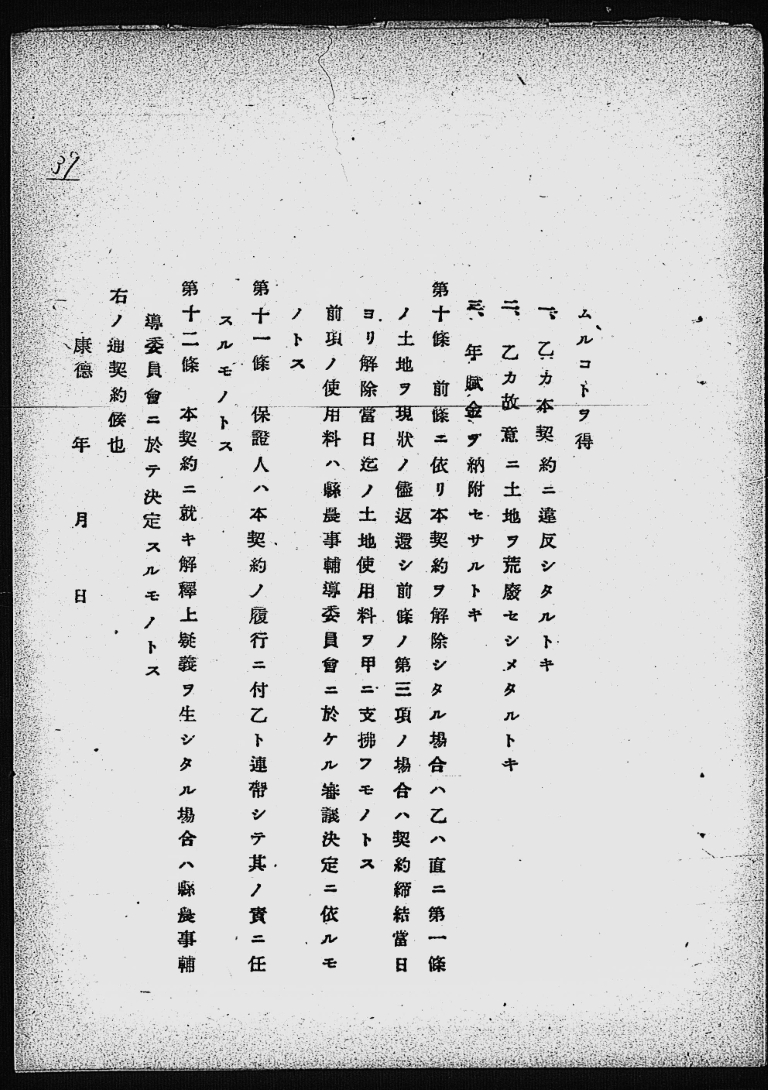 37
ムルコトヲ得
一、乙カ本契約ニ違反シタルトキ
二、乙カ故意ニ土地ヲ荒廢セシメタルトキ
三、年賦金ヲ納附セサルトキ
第十條　前條ニ依リ本契約ヲ解除シタル場合ハ乙ハ直ニ第一條
ノ土地ヲ現狀ノ儘返還シ前條ノ第三項ノ場合ハ契約締結當日
ヨリ解除當日迄ノ土地使用料ヲ甲ニ支拂フモノトス
前項ノ使用料ハ縣農事輔導委員會ニ於ケル審議決定ニ依ルモ
ノトス
第十一條　保證人ハ本契約ノ履行ニ付乙ト連帶シテ其ノ責ニ任
スルモノトス
第十二條　本契約ニ就キ解釋上疑義ヲ生シタル場合ハ縣農事輔
導委員會ニ於テ決定スルモノトス
右ノ通契約候也
康德　年　月　日